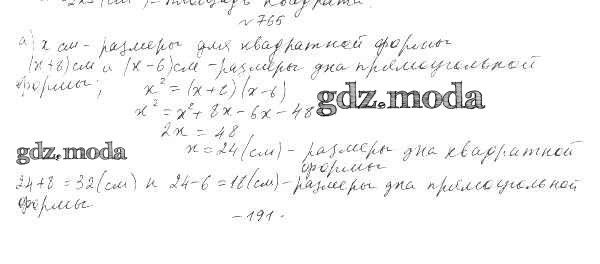 площадь квадрата.
№766
а) x см - размеры для квадратной формы
(x+8) см и (x-6) см - размеры дна прямоугольной
формы;
x² = (x+8)(x-6)
x² = x² + 8x - 6x - 48
gdz.moda
2x = 48
gdz.moda
x = 24 (см) - размеры дна квадратной
формы
24+8 = 32 (см) и 24-6 = 18 (см) - размеры дна прямоугольной
формы
- 191 -